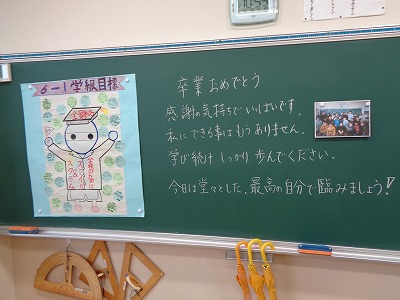 6-1学級目標
卒業おめでとう
感謝の気持ちでいっぱいです。
私にできる事はもうありません。
学び続けしっかり歩んでください。
今日は堂々とした、最高の自分で臨みましょう!